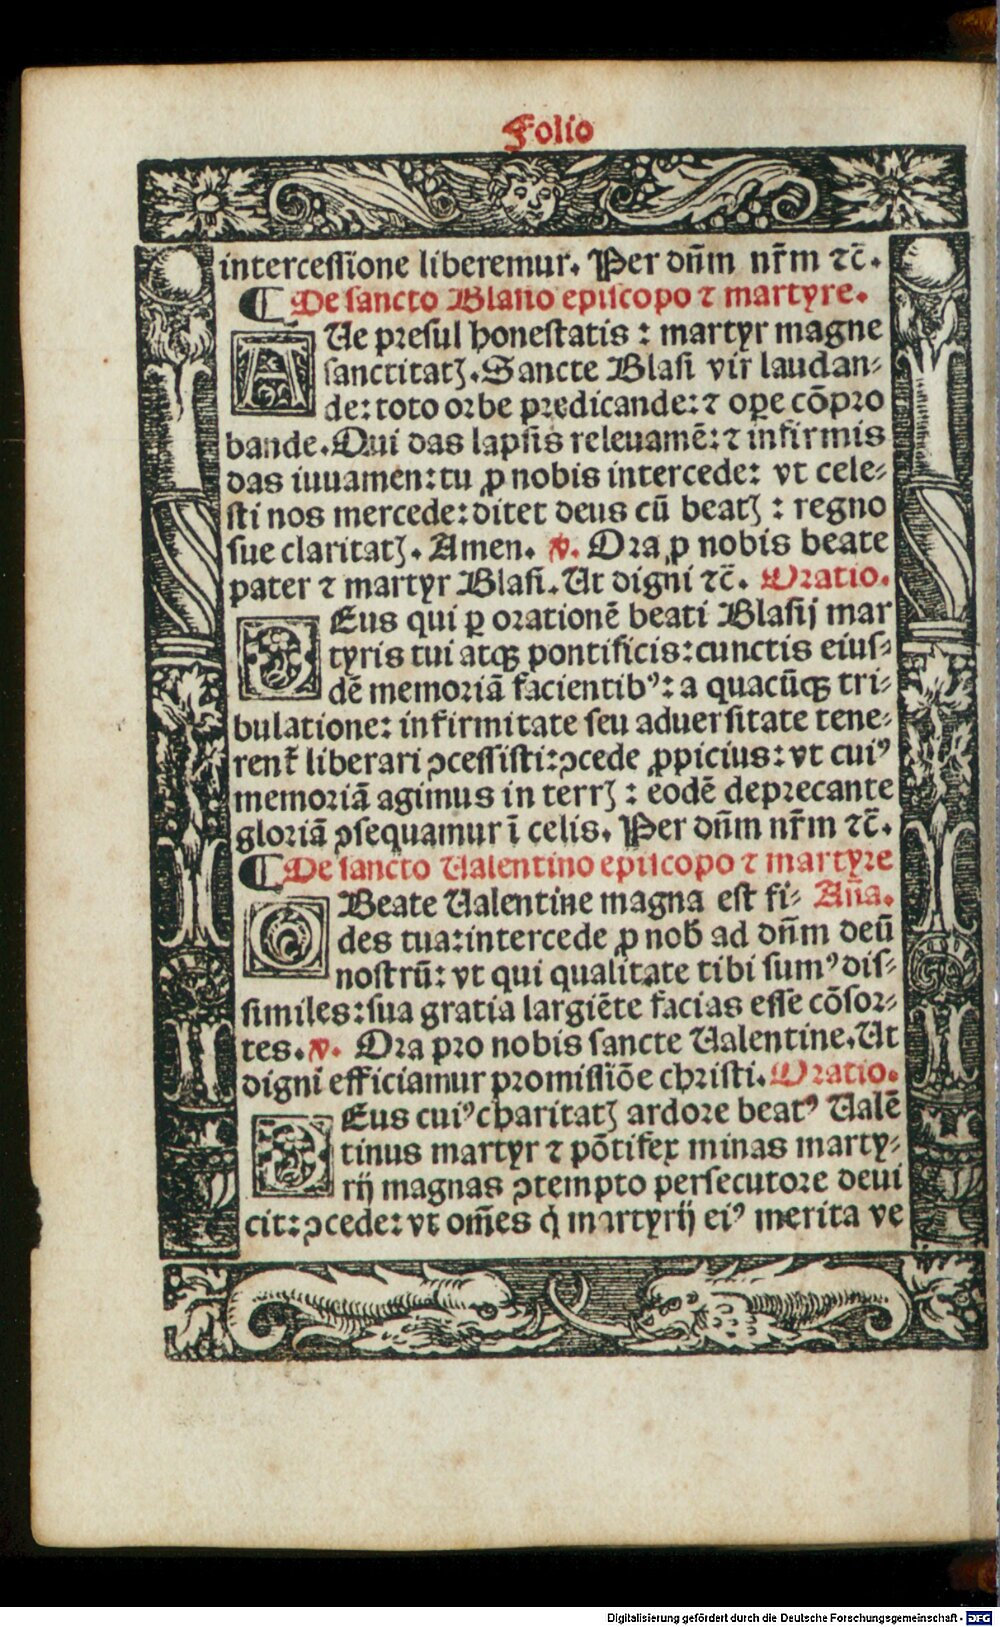 Folio
intercessione liberemur. Per dñm nr̃m ⁊c̃.
¶ De sancto Blasio episcopo ⁊ martyre.
AUe presul honestatis : martyr magne
sanctitatꝭ. Sancte Blasi vir laudan-
de: toto orbe predicande: ⁊ ope cõpro
bande. Qui das lapsis releuamẽ: ⁊ infirmis
das iuuamen: tu ꝓ nobis intercede: vt cele-
sti nos mercede: ditet deus cũ beatꝭ : regno
sue claritatꝭ. Amen. ℣. Ora ꝓ nobis beate
pater ⁊ martyr Blasi. Ut digni ⁊c̃. Oratio.
DEus qui ꝑ orationẽ beati Blasij mar
tyris tui atqꝫ pontificis: cunctis eius-
dẽ memoriã facientibꝰ: a quacũqꝫ tri-
bulatione: infirmitate seu aduersitate tene-
rent̃ liberari ꝯcessisti: ꝯcede ꝓpicius: vt cuiꝰ
memoriã agimus in terrꝭ : eodẽ deprecante
gloriã ꝯsequamur ĩ celis. Per dñm nr̃m ⁊c̃.
¶ De sancto Ualentino episcopo ⁊ martyre
O Beate Ualentine magna est fi- Añа.
des tua: intercede ꝓ nob̃ ad dñm deũ
nostrũ: vt qui qualitate tibi sumꝰ dis-
similes: sua gratia largiẽte facias esse cõsor-
tes. ℣. Ora pro nobis sancte Ualentine. Ut
digni efficiamur promissiõe christi. Oratio.
DEus cuiꝰ charitatꝭ ardore beatꝰ Ualẽ
tinus martyr ⁊ põtifex minas marty-
rij magnas ꝯtempto persecutore deui
cit: ꝯcede: vt om̃es q̇ martyrij eiꝰ merita ve
Digitalisierung gefördert durch die Deutsche Forschungsgemeinschaft - DFG